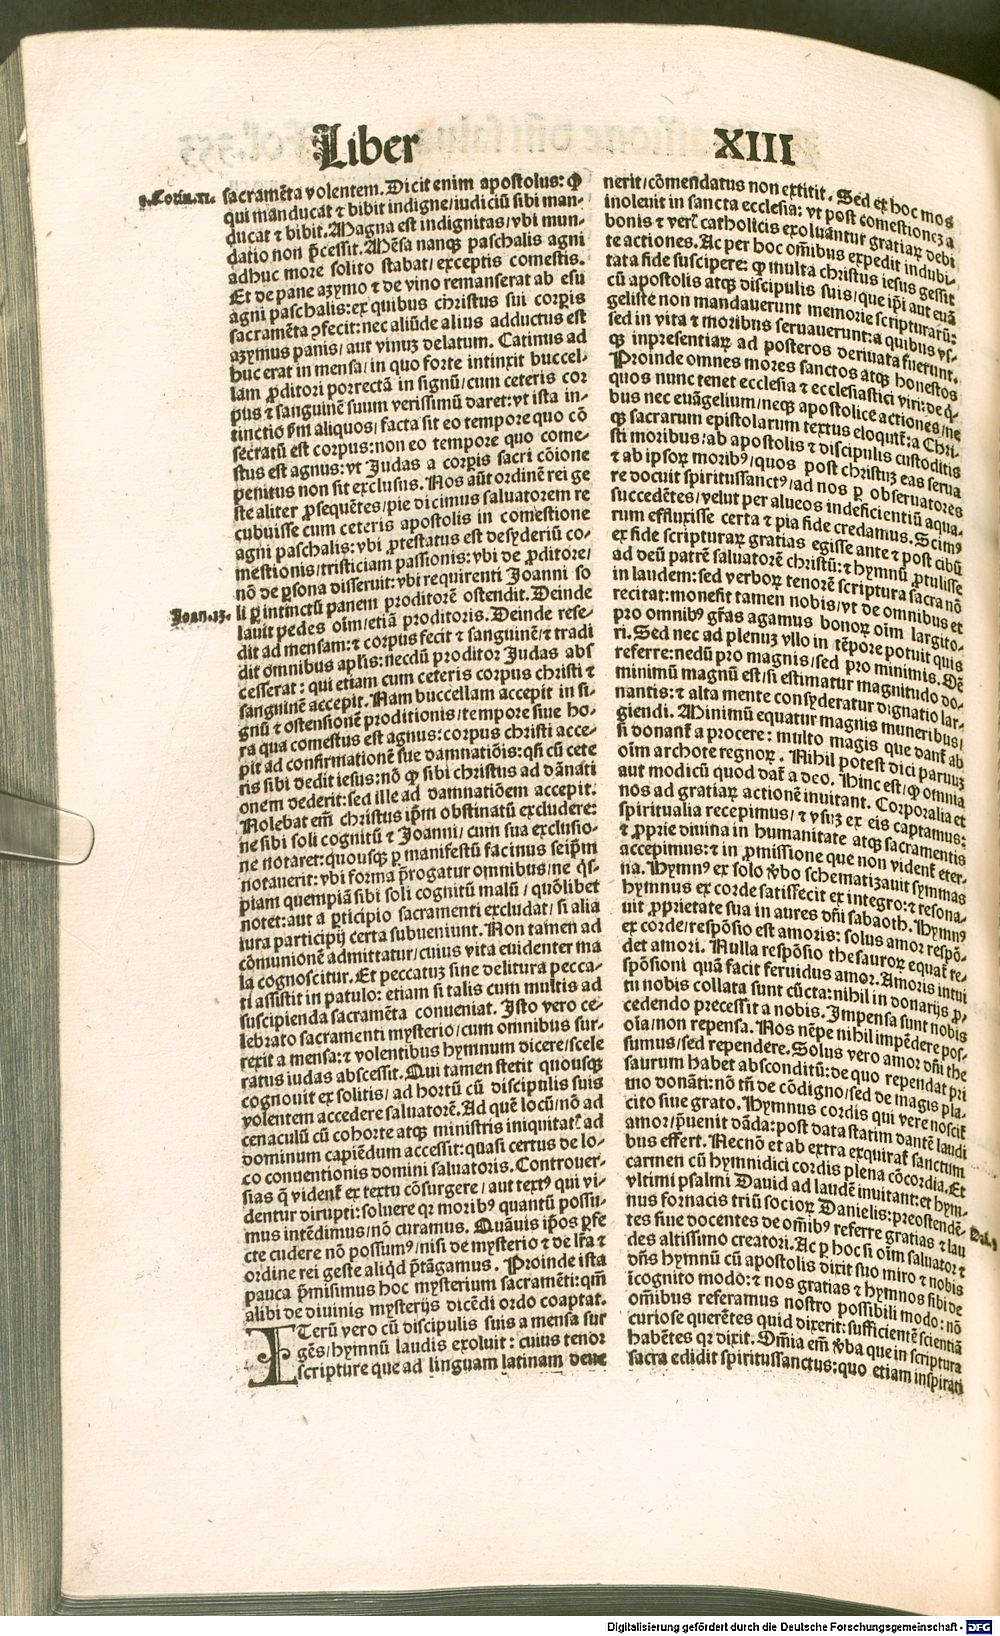 Liber XIII
1.Corin.xi. sacramēta volentem. Dicit enim apostolus: Qꝫ
qui manducat ⁊ bibit indigne/iudiciū sibi man-
ducat ⁊ bibit. Magna est indignitas/vbi mun-
datio non p̄cessit. Mēsa nanqꝫ paschalis agni
adhuc more solito stabat/exceptis comestis.
Et de pane azymo ⁊ de vino remanserat ab esu
agni paschalis: ex quibus christus sui corꝑis
sacramēta ꝯfecit: nec aliūde alius adductus est
azymus panis/aut vinuꝫ delatum. Catinus ad
huc erat in mensa/in quo forte intinxit buccel-
lam ꝓditori porrectā in signū/cum ceteris cor
pus ⁊ sanguinē suum verissimū daret: vt ista in-
tinctio ẜm aliquos/facta sit eo tempore quo cō
secratū est corpus: non eo tempore quo come-
stus est agnus: vt Judas a corꝑis sacri cōione
penitus non sit exclusus. Nos aūt ordinē rei ge
ste aliter ꝓsequētes/pie dicimus saluatorem re
cubuisse cum ceteris apostolis in comestione
agni paschalis: vbi ꝓtestatus est desyderiū co-
mestionis/tristiciam passionis: vbi de ꝓditore/
nō de ꝑsona disseruit: vbi requirenti Joanni so
Joan.13. li ꝑ intinctū panem proditorē ostendit. Deinde
lauit pedes oīm/etiā proditoris. Deinde rese-
dit ad mensam: ⁊ corpus fecit ⁊ sanguinē/⁊ tradi
dit omnibus aplis: necdū proditor Judas abs
cesserat: qui etiam cum ceteris corpus christi ⁊
sanguinē accepit. Nam buccellam accepit in si-
gnū ⁊ ostensionē proditionis/tempore siue ho-
ra qua comestus est agnus: corpus christi acce-
pit ad confirmationē sue damnatiōis: qsi cū cete
ris sibi dedit iesus: nō qꝫ sibi christus ad dānati
onem dederit: sed ille ad damnatiōem accepit.
Nolebat em̄ christus ip̄m obstinatū excludere:
ne sibi soli cognitū ⁊ Joanni/cum sua exclusio-
ne notaret: quousqꝫ ꝑ manifestū facinus seip̄m
notauerit: vbi forma p̄rogatur omnibus/ne qs-
piam quempiā sibi soli cognitū malū/quōlibet
notet: aut a ꝑticipio sacramenti excludat/si alia
iura participij certa subueniunt. Non tamen ad
cōmunionē admittatur/cuius vita euidenter ma
la cognoscitur. Et peccatuꝫ sine delitura pecca-
ti assistit in patulo: etiam si talis cum multis ad
suscipienda sacramēta conueniat. Isto vero ce-
lebrato sacramenti mysterio/cum omnibus sur-
rexit a mensa: ⁊ volentibus hymnum dicere/scele
ratus iudas abscessit. Qui tamen stetit quousqꝫ
cognouit ex solitis/ad hortū cū discipulis suis
volentem accedere saluatorē. Ad quē locū/nō ad
cenaculū cū cohorte atqꝫ ministris iniquitatꝭ ad
dominum capiēdum accessit: quasi certus de lo-
co conuentionis domini saluatoris. Controuer-
sias q̄ vident̄ ex textu cōsurgere/aut textꝰ qui vi-
dentur dirupti: soluere qꝛ moribꝰ quantū possu-
mus intēdimus/nō curamus. Quāuis ip̄os ꝑfe
cte cudere nō possumꝰ/nisi de mysterio ⁊ de lr̄a ⁊
ordine rei geste aliqd p̄tāgamus. Proinde ista
pauca p̄misimus hoc mysterium sacramēti: qm̄
alibi de diuinis mysterijs dicēdi ordo coaptat.
ITerū vero cū discipulis suis a mensa sur
gēs/hymnū laudis exoluit: cuius tenor
scripture que ad linguam latinam deue
nerit/cōmendatus non extitit. Sed ex hoc mos
inoleuit in sancta ecclesia: vt post comestioneꝫ a
bonis ⁊ verꝭ catholicis exoluantur gratiaꝝ debi
te actiones. Ac per hoc oīibus expedit indubi-
tata fide suscipere: qꝫ multa christus iesus gessit
cū apostolis atqꝫ discipulis suis/que ip̄i aut euā
geliste non mandauerunt memorie scripturarū:
sed in vita ⁊ moribus seruauerunt: a quibus vs-
qꝫ inpresentiaꝝ ad posteros deriuata fuerunt.
Proinde omnes mores sanctos atqꝫ honestos
quos nunc tenet ecclesia ⁊ ecclesiastici viri: de q-
bus nec euāgelium/neqꝫ apostolice actiones/ne
qꝫ sacrarum epistolarum textus eloquit̄: a Chri-
sti moribus/ab apostolis ⁊ discipulis custoditis
⁊ ab ipsoꝝ moribꝰ/quos post christuꝫ eas serua
re docuit spiritussanctꝰ/ad nos ꝑ obseruatores
succedētes/velut per alueos indeficientiū aqua-
rum effluxisse certa ⁊ pia fide credamus. Scimꝰ
ex fide scripturaꝝ gratias egisse ante ⁊ post cibū
ad deū patrē saluatorē christū: ⁊ hymnū ꝓtulisse
in laudem: sed verboꝝ tenorē scriptura sacra nō
recitat: monefit tamen nobis/vt de omnibus et
pro omnibꝰ gr̄as agamus bonoꝝ oīm largito-
ri. Sed nec ad plenuꝫ vllo in tēpore potuit quis
referre: nedū pro magnis/sed pro minimis. Oē
minimū magnū est/si estimatur magnitudo do-
nantis: ⁊ alta mente consyderatur dignatio lar-
giendi. Minimū equatur magnis muneribus/
si donant̄ a procere: multo magis que dant̄ ab
oīm archote regnoꝝ. Nihil potest dici paruuꝫ
aut modicū quod dat̄ a deo. Hinc est/qꝫ omnia
nos ad gratiaꝝ actionē inuitant. Corporalia et
spiritualia recepimus/⁊ vsuꝫ ex eis captamus:
⁊ ꝓprie diuina in humanitate atqꝫ sacramentis
accepimus: ⁊ in ꝓmissione que non vident̄ eter-
na. Hymnꝰ ex solo ꝟbo schematizauit symmas
hymnus ex corde satisfecit ex integro: ⁊ resona-
uit ꝓprietate sua in aures dn̄i sabaoth. Hymnꝰ
ex corde/respōsio est amoris: solus amor respō-
det amori. Nulla respōsio thesauroꝝ equat̄ re-
spōsioni quā facit feruidus amor. Amoris intui
tu nobis collata sunt cūcta: nihil in donarijs ꝓ-
cedendo precessit a nobis. Impensa sunt nobis
oīa/non repensa. Nos nēpe nihil impēdere pos-
sumus/sed rependere. Solus vero amor dn̄i the
saurum habet absconditū: de quo rependat pri
mo donāti: nō tn̄ de cōdigno/sed de magis pla-
cito siue grato. Hymnus cordis qui vere noscit̄
amor/p̄uenit dāda: post data statim dantē laudi
bus effert. Necnō et ab extra exquirat̄ sanctum
carmen cū hymnidici cordis plena cōcordia. Et
vltimi psalmi Dauid ad laudē inuitant: et hym-
nus fornacis triū socioꝝ Danielis: preostendē- Dal.3
tes siue docentes de om̄ibꝰ referre gratias ⁊ lau
des altissimo creatori. Ac ꝑ hoc si oīm saluator ⁊
dn̄s hymnū cū apostolis dixit suo miro ⁊ nobis
īcognito modo: ⁊ nos gratias ⁊ hymnos sibi de
om̄ibus referamus nostro possibili modo: nō
curiose querētes quid dixerit: sufficientē scientiā
habētes qꝛ dixit. Om̄ia em̄ ꝟba que in scriptura
sacra edidit spiritussanctus: quo etiam inspirati
Digitalisierung gefördert durch die Deutsche Forschungsgemeinschaft - DFG